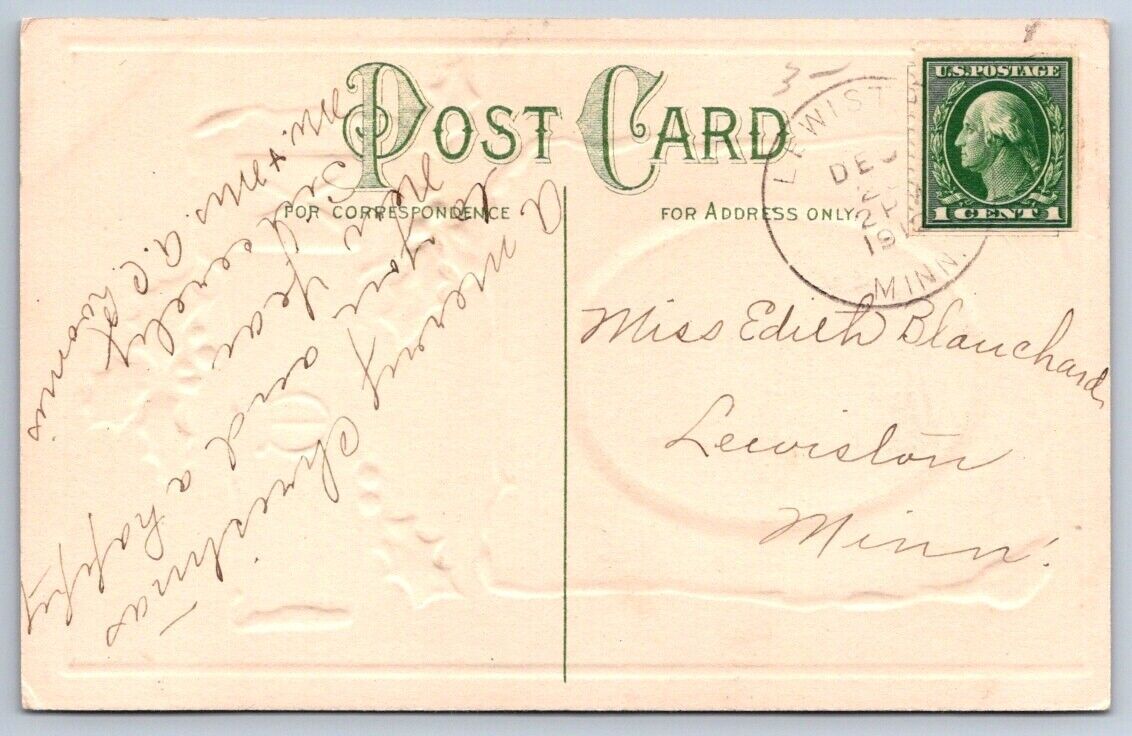 POST CARD
FOR CORRESPONDENCE
FOR ADDRESS ONLY.
U.S. POSTAGE
1 CENT 1
LEWIST
DEC
191
MINN.
A merry Christmas
to you and a happy
New Year
Sincerely
Mr. & Mrs. A. C.
Miss Edith Blanchard
Lewiston
Minn.